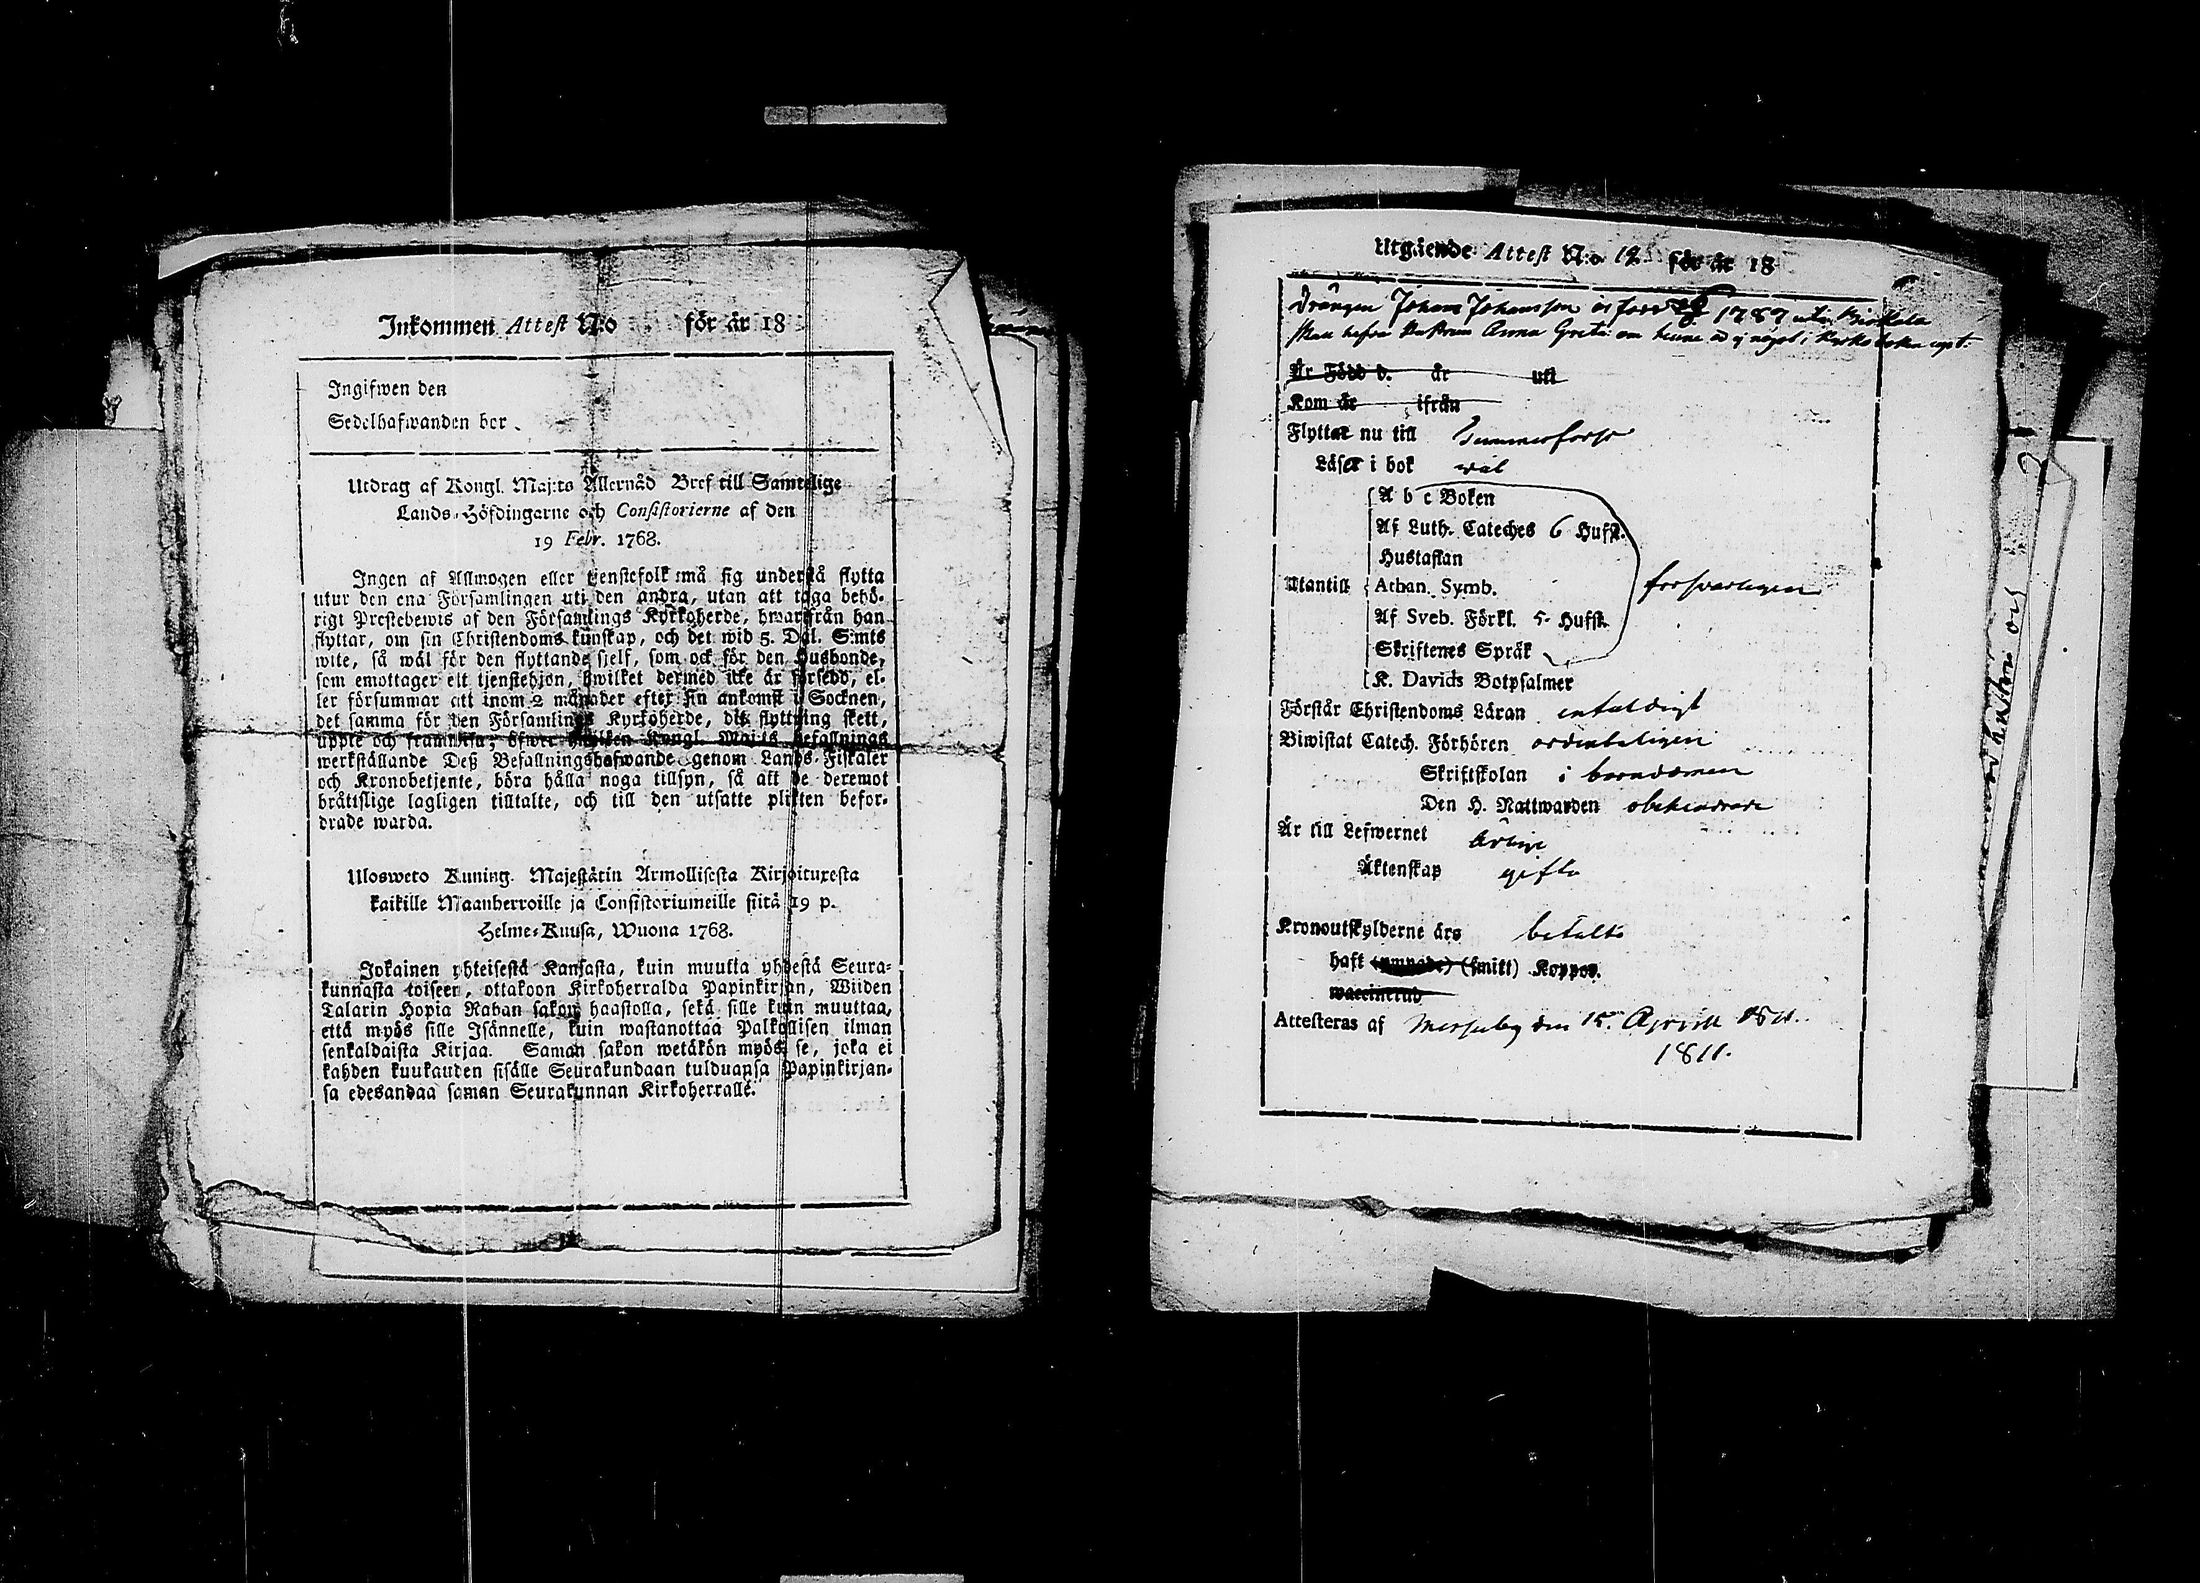 Inkommen Attest N:o för år 18
Ingifwen den
Sedelhafwanden bor
Utdrag af Kongl. Maj:ts Allernåd Bref till Samtelige
Lands-Höfdingarne och Consistorierne af den
19 Febr. 1768.
Ingen af Allmogen eller tjenstefolk må sig understå flytta
utur den ena Församlingen uti den andra, utan att taga behö-
rigt Prestebewis af den Församlings Kyrkoherde, hwarifrån han
flyttar, om sin Christendoms kunskap, och det wid 5. Dal. S:mts
wite, så wäl för den flyttande sjelf, som ock för den Husbonde,
som emottager ett tjenstehjon, hwilket dermed icke är försedd, el-
ler försummar att inom 2 månader efter sin ankomst i Socknen,
det samma för den Församlings Kyrkoherde, dit flyttning skett,
uppte och framwisa; öfwer hwilken Kongl. Maj:ts befallnings
werkställande Deß Befallningshafwande genom Lands-Fiskaler
och Kronobetjente, böra hålla noga tillsyn, så att de deremot
bråttslige lagligen tilltalte, och till den utsatte plikten befor-
drade warda.
Ulosweto Kuning. Majestätin Armollisesta Kirjoituxesta
kaikille Maanherroille ja Consistoriumeille siitä 19 p.
Helme-Kuusa, Wuona 1768.
Jokainen yhteisestä Kansasta, kuin muutta yhdestä Seura-
kunnasta toiseen, ottakoon Kirkoherralda Papinkirjan, Wiiden
Talarin Hopia Rahan sakon haastolla, sekä sille kuin muuttaa,
että myös sille Isännelle, kuin wastanottaa Palkollisen ilman
senkaldaista Kirjaa. Saman sakon wetäkön myös se, joka ei
kahden kuukauden sisälle Seurakundaan tulduansa Papinkirjan-
sa edesandaa saman Seurakunnan Kirkoherralle.
Utgående Attest N:o 12 för år 18
Drängen Johan Johansson är född 1787 uti Birkala
skall hafva Hustrun Anna Greta: om henne är ej något i Kyrko boken upt.
Är Född d. år uti
Kom år ifrån
Flyttar nu till Tammerfors
Läser i bok wäl
A b c Boken
Af Luth. Cateches 6 Hufst.
Hustaflan
Utantill Athan. Symb. försvarligen
Af Sveb. Förkl. 5. Hufst.
Skriftenes Språk
K. Davids Botpsalmer
Förstår Christendoms Läran enfaldigt
Biwistat Catech. Förhören ordenteligen
Skriftskolan i barndomen
Den H. Nattwarden obehindrade
Är till Lefwernet ärlige
Äktenskap gifte
Kronoutskylderne års betalte
haft (ympade) (smitt) Koppor.
waccinerad
Attesteras af Messuby den 15. April
1811.